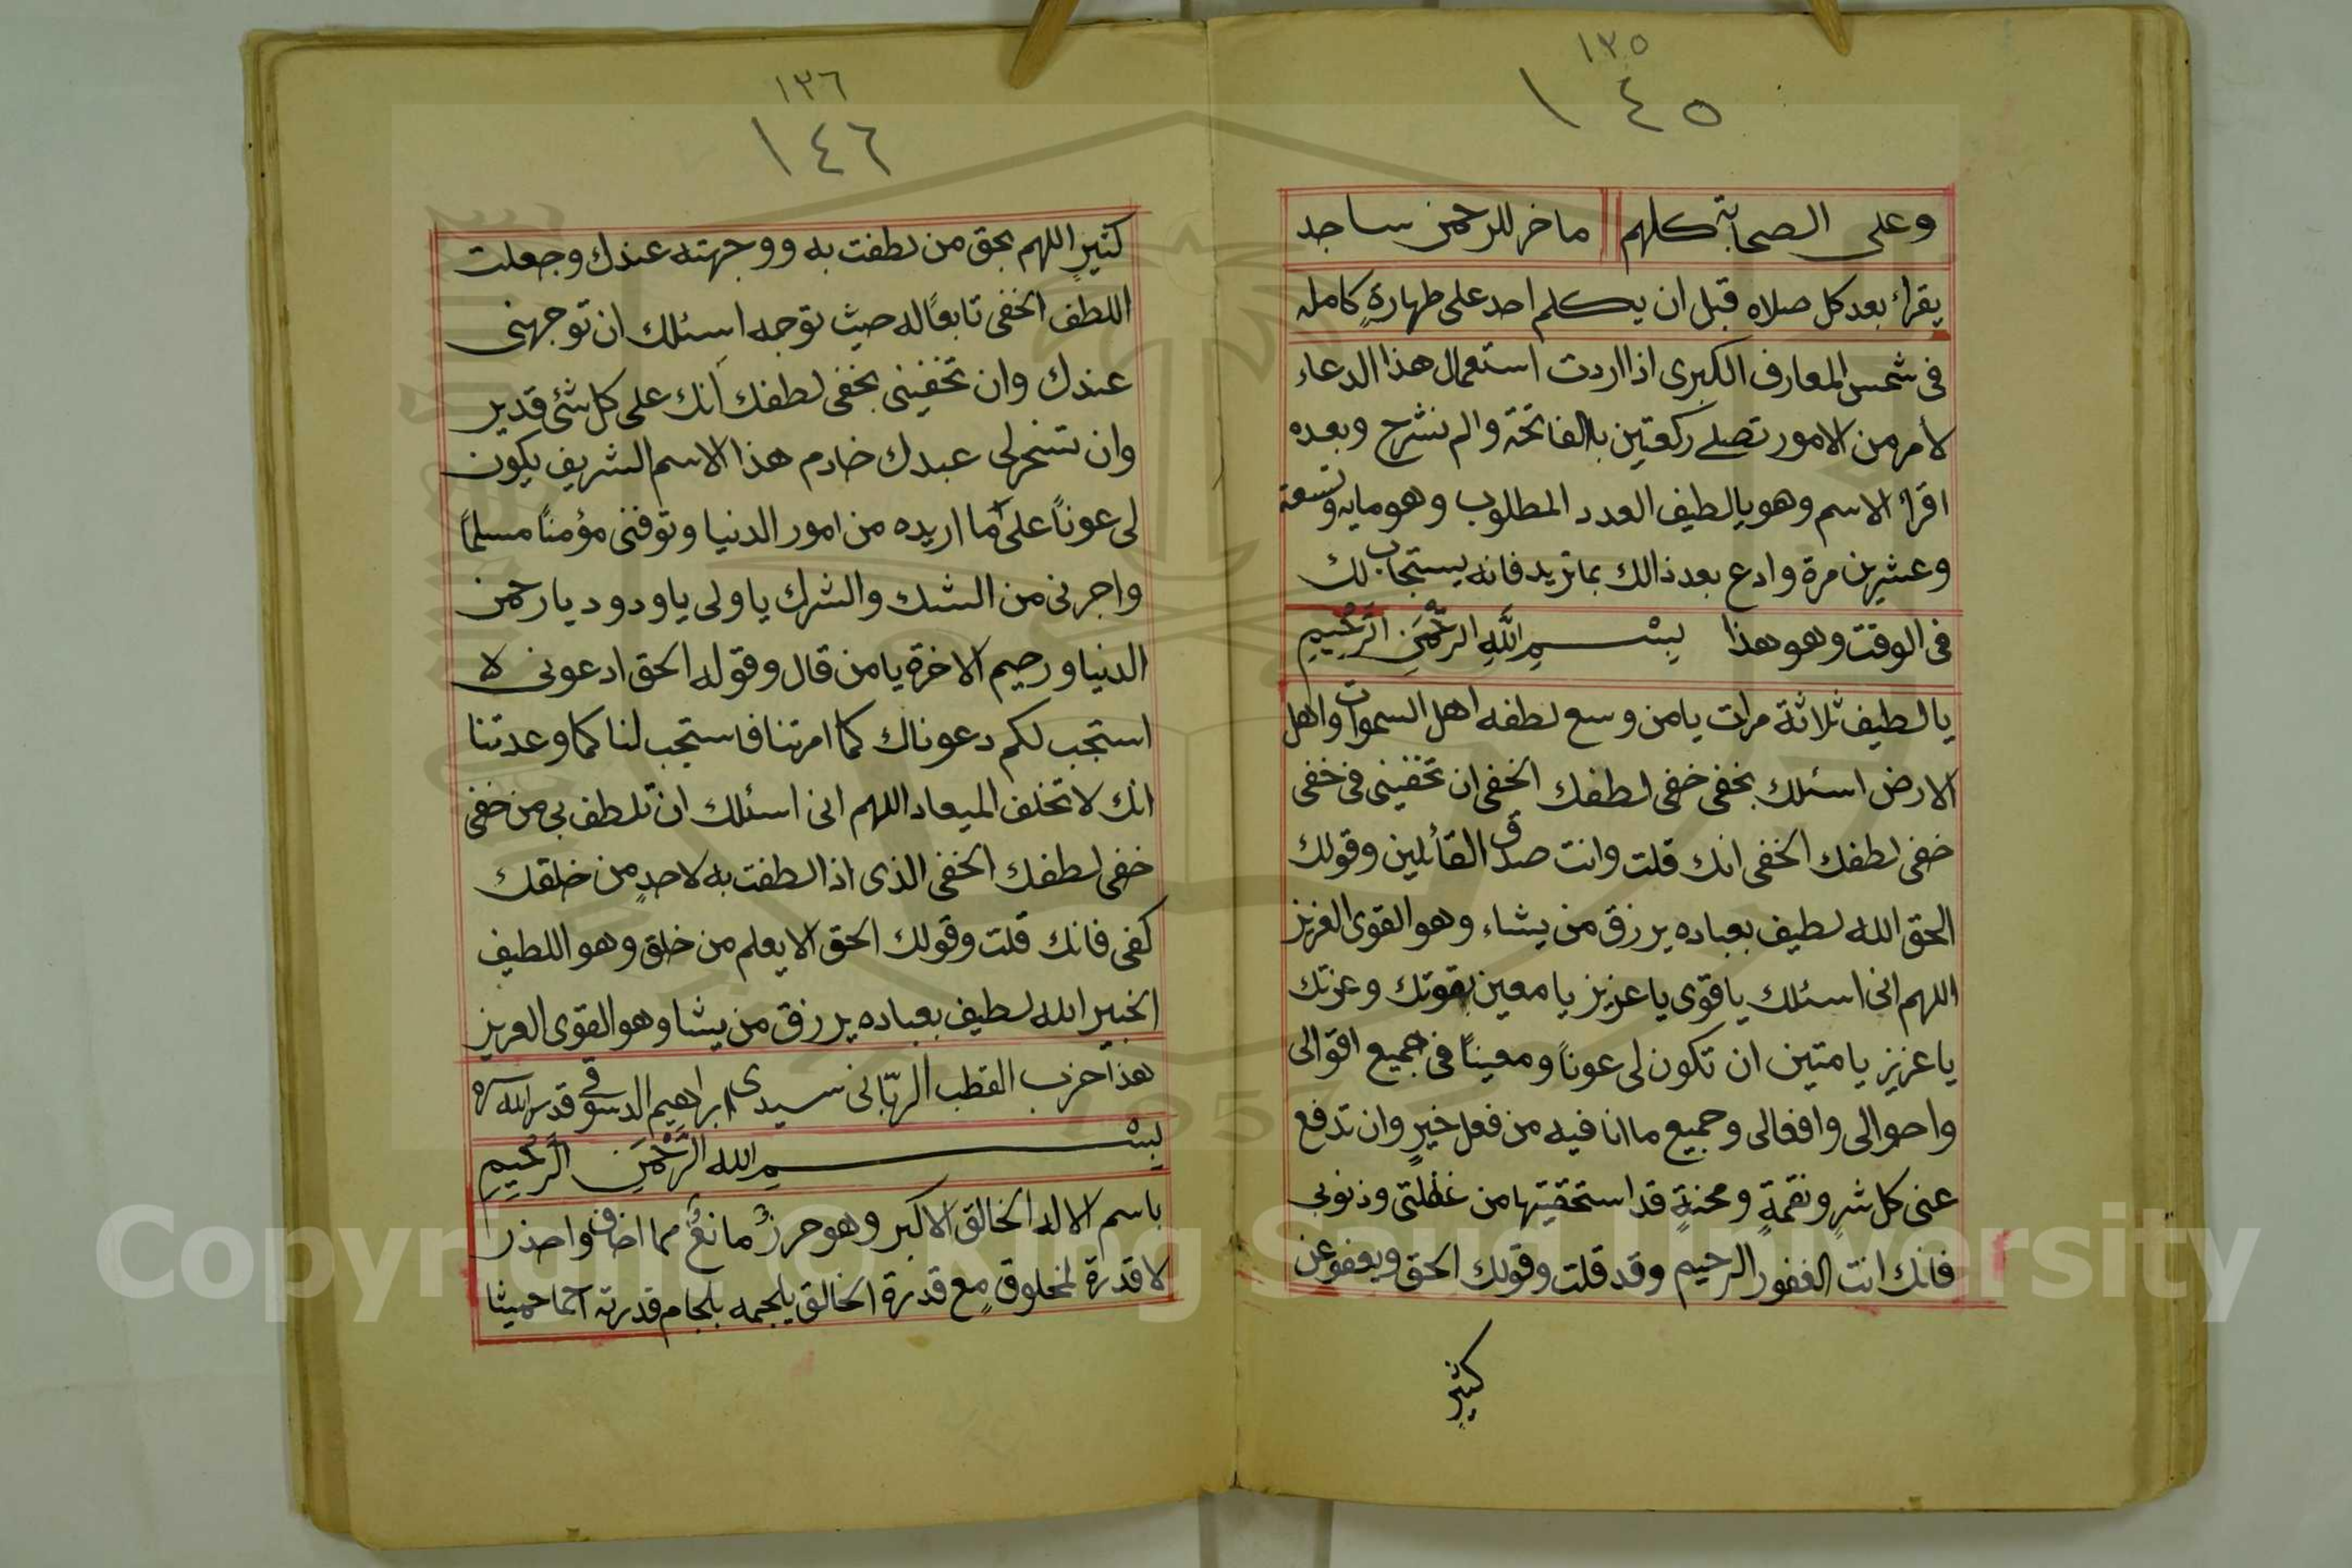 ١٣٥
١٤٥
وعلى الصحابة كلهم ماخر للرحمن ساجد
يقراء بعد كل صلاه قبل ان يكلم احد على طهارةٍ كامله
فى شمس المعارف الكبرى اذا اردت استعمال هذا الدعاء
لامر من الامور تصلے ركعتين بالفاتحة والم نشرح وبعده
اقراء الاسم وهو يالطيف العدد المطلوب وهو مايه وتسعة
وعشرين مرة وادع بعد ذالك بما تريد فانه يستجاب لك
فى الوقت وهو هذا بِسْمِ اللَّهِ الرَّحْمَنِ الرَّحِيْمِ
يا لطيف ثلاثة مرات يامن وسع لطفه اهل السموات واهل
الارض اسئلك بخفى خفى لطفك الخفى ان تخفينى فى خفى
خفى لطفك الخفى انك قلت وانت صدق القائلين وقولك
الحق الله لطيف بعباده يرزق من يشاء وهو القوى العزيز
اللهم انى اسئلك ياقوى يا عزيز يا معين بقوتك وعزتك
يا عزيز يا متين ان تكون لى عوناً ومعيناً فى جميع اقوالى
واحوالى وافعالى وجميع ما انا فيه من فعل خيرٍ وان تدفع
عنى كل شرٍ ونقمةٍ ومحنةٍ قد استحقيتها من غفلتى وذنوبى
فانك انت الغفور الرحيم وقد قلت وقولك الحق ويعفو عن
كثيرٍ
١٣٦
١٤٦
كثيرٍ اللهم بحق من لطفت به ووجهته عندك وجعلت
اللطف الخفى تابعاً له حيث توجه اسئلك ان توجهنى
عندك وان تخفينى بخفى لطفك انك على كل شئ قدير
وان تسخر لى عبدك خادم هذا الاسم الشريف يكون
لى عوناً على ما اريده من امور الدنيا وتوفنى مؤمناً مسلماً
واجرنى من الشك والشرك يا ولى ياودود يارحمن
الدنيا ورحيم الاخرة يامن قال وقوله الحق ادعونى لا
استجب لكم دعوناك كما امرتنا فاستجب لنا كما وعدتنا
انك لا تخلف الميعاد اللهم انى اسئلك ان تلطف بى من خفى
خفى لطفك الخفى الذى اذا لطفت به لاحدٍ من خلقك
كفى فانك قلت وقولك الحق الا يعلم من خلق وهو اللطيف
الخبير الله لطيف بعباده يرزق من يشا وهو القوى العزيز
هذا حزب القطب الربّانى سيدى ابراهيم الدسوقى قدس الله سره
بِسْمِ الله الرَّحْمَنِ الرَّحِيْمِ
باسم الاله الخالق الاكبر وهو حرزٌ مانعٌ مما اخاف واحذر
لا قدرة لمخلوقٍ مع قدرة الخالق يلجمه بلجام قدرته احما حميثا
Copyright © King Saud University
1957